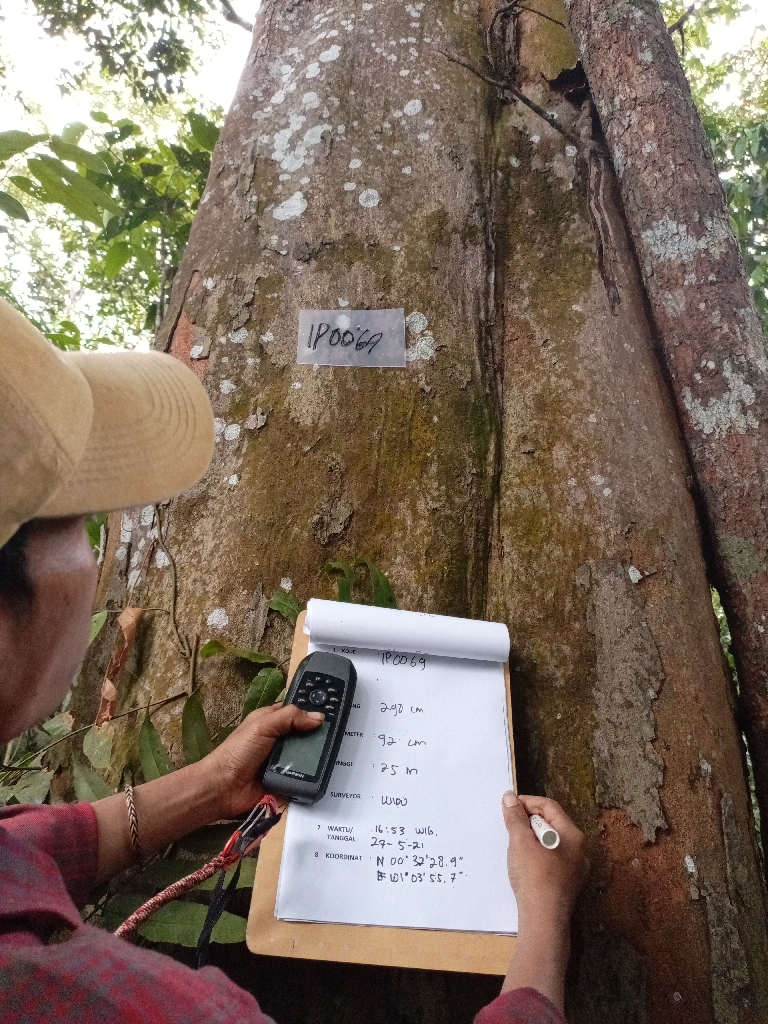 IP0069
1 KODE : IP0069
: 
NG : 290 cm
METER : 92 cm
NGGI : 25 m
SURVEYOR : WIDO
7 WAKTU/ : 16:53 WIB.
TANGGAL 27-5-21
8 KOORDINAT : N 00° 32' 28.9"
E 101° 03' 55.7"
GARMIN